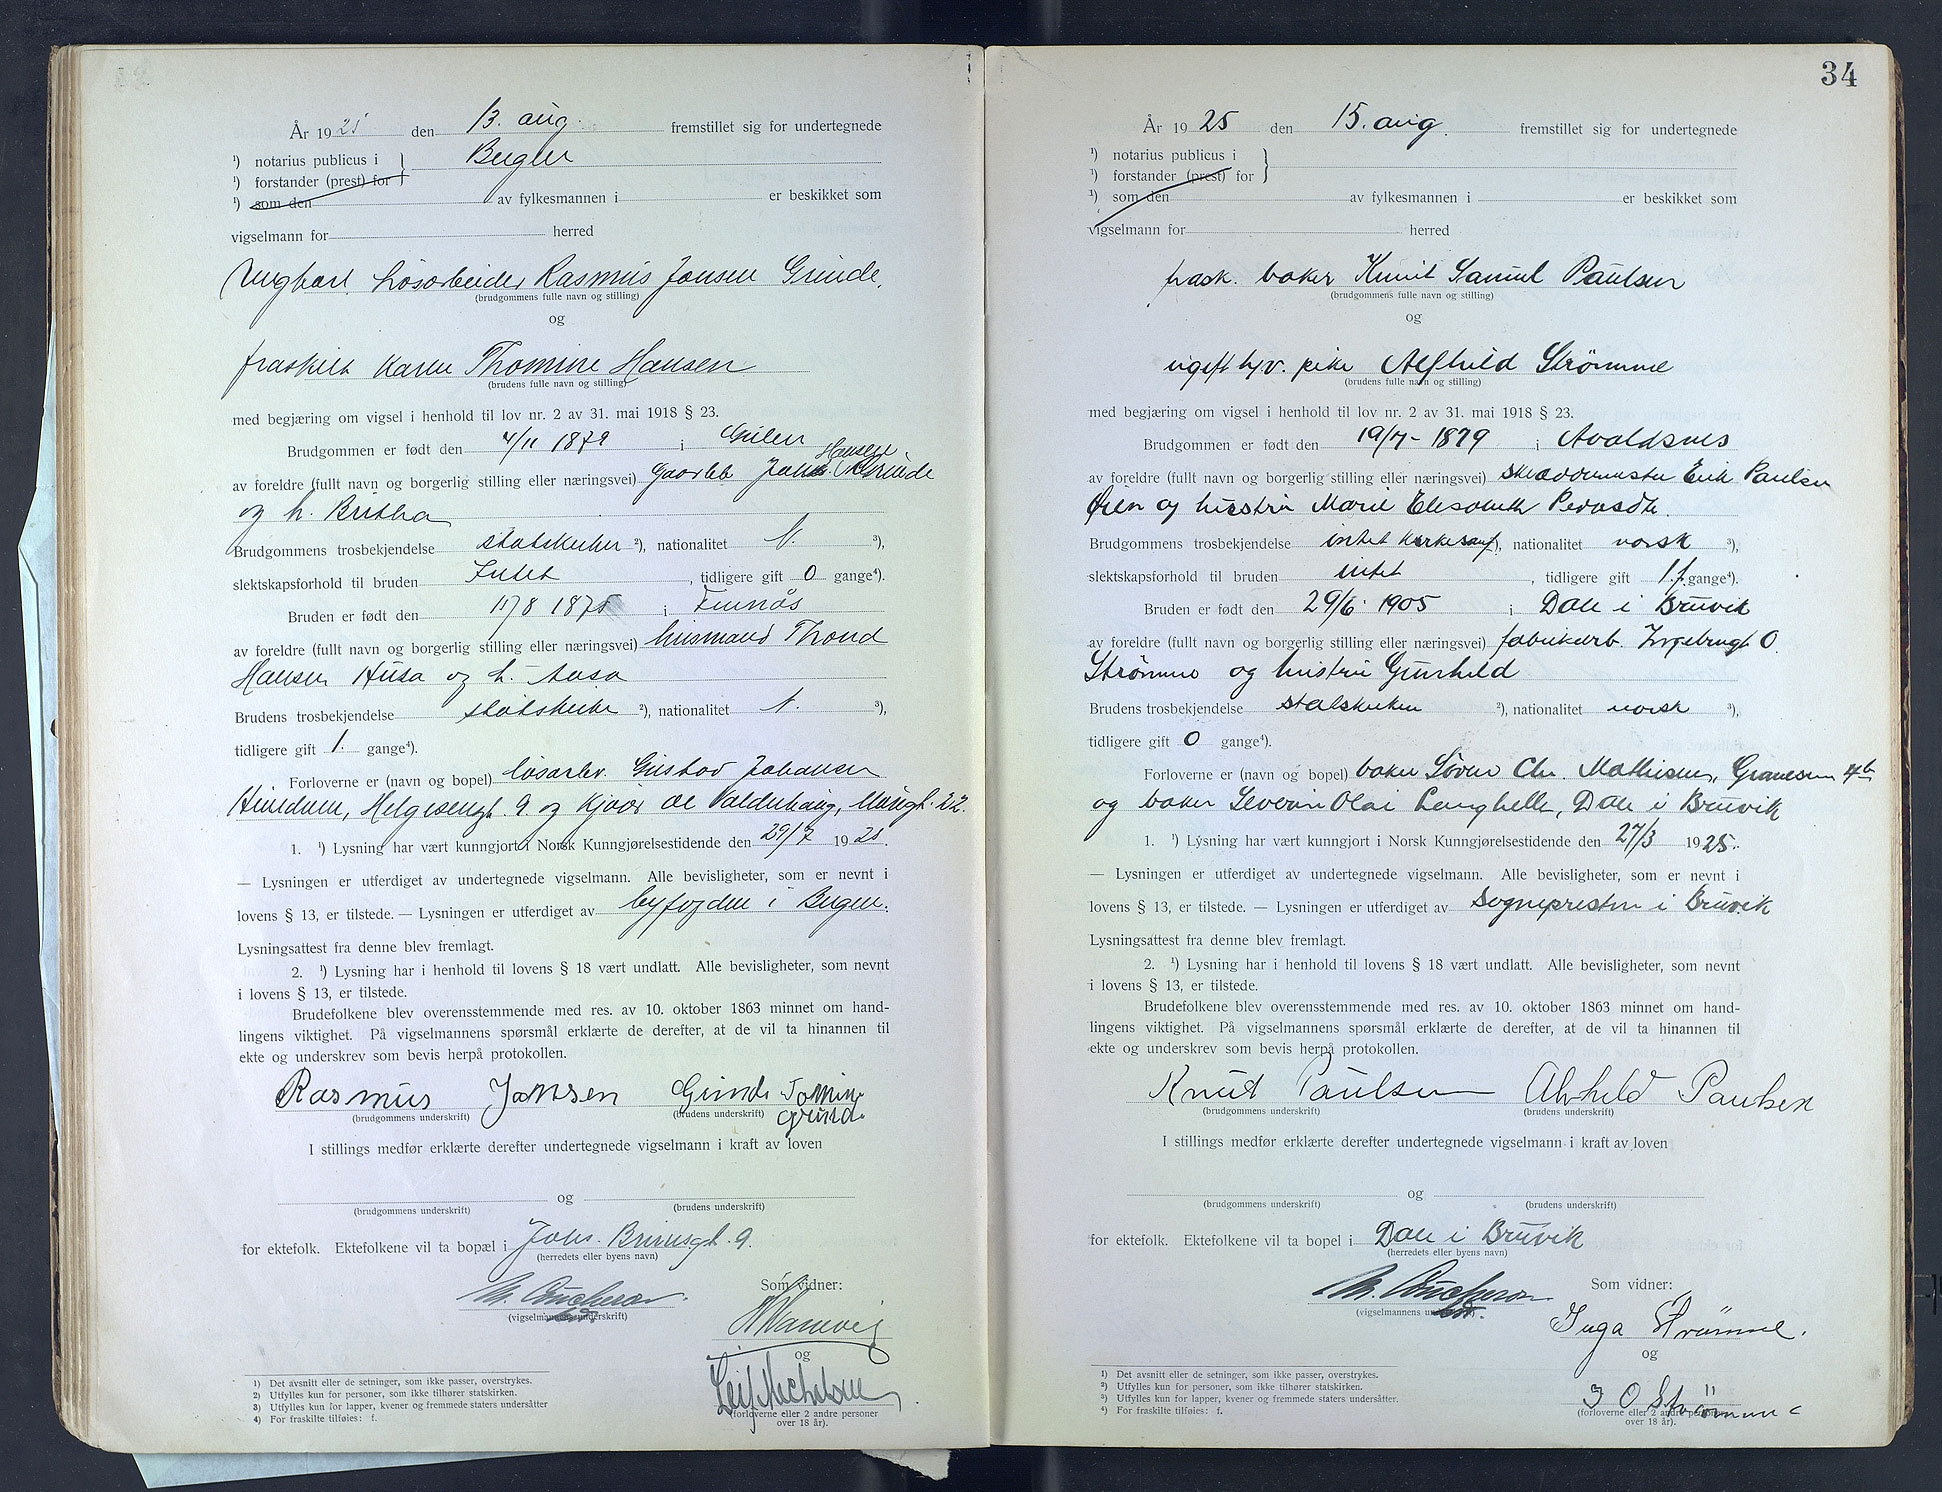 År 1925 den 13. aug. fremstillet sig for undertegnede
¹) notarius publicus i } Bergen
¹) forstander (prest) for
¹) som den av fylkesmannen i er beskikket som
vigselmann for herred
Ungkarl løsarbeider Rasmus Jonsen Grinde,
(brudgommens fulle navn og stilling)
og
fraskilt Karen Thomine Hansen
(brudens fulle navn og stilling)
med begjæring om vigsel i henhold til lov nr. 2 av 31. mai 1918 § 23.
Brudgommen er født den 4/11 1879 i Gulen
Hansen
av foreldre (fullt navn og borgerlig stilling eller næringsvei) Grinde
og h. Britha
Brudgommens trosbekjendelse statskirken ²), nationalitet N. ³),
slektskapsforhold til bruden Intet, tidligere gift 0 gange⁴).
Bruden er født den 8 1875 i Finnås
av foreldre (fullt navn og borgerlig stilling eller næringsvei) husmand Thond
Hansen Husa og h. Aasa
Brudens trosbekjendelse statskirke ²), nationalitet N. ³),
tidligere gift 1. gange⁴).
Forloverne er (navn og bopel) løsarb. Gustav Johansen
Hindenæs, Helgesensgt. 9 og Valderhaug, 22.
1. ¹) Lysning har vært kunngjort i Norsk Kunngjørelsestidende den 29/7 1925.
— Lysningen er utferdiget av undertegnede vigselmann. Alle bevisligheter, som er nevnt i
lovens § 13, er tilstede. — Lysningen er utferdiget av byfogden i Bergen.
Lysningsattest fra denne blev fremlagt.
2. ¹) Lysning har i henhold til lovens § 18 vært undlatt. Alle bevisligheter, som nevnt
i lovens § 13, er tilstede.
Brudefolkene blev overensstemmende med res. av 10. oktober 1863 minnet om hand-
lingens viktighet. På vigselmannens spørsmål erklærte de derefter, at de vil ta hinannen til
ekte og underskrev som bevis herpå protokollen.
Rasmus Jonsen Grinde Tomine
Grinde
(brudgommens underskrift) (brudens underskrift)
I stillings medfør erklærte derefter undertegnede vigselmann i kraft av loven
og
(brudgommens underskrift) (brudens underskrift)
for ektefolk. Ektefolkene vil ta bopæl i Johs. Brunsgt. 9.
(herredets eller byens navn)
Som vidner:
(vigselmannens underskrift)
og
Leif Michelsen
(forloverne eller 2 andre personer
over 18 år).
1) Det avsnitt eller de setninger, som ikke passer, overstrykes.
2) Utfylles kun for personer, som ikke tilhører statskirken.
3) Utfylles kun for lapper, kvener og fremmede staters undersåtter
4) For fraskilte tilføies: f.
34
År 1925 den 15. aug. fremstillet sig for undertegnede
¹) notarius publicus i }
¹) forstander (prest) for
¹) som den av fylkesmannen i er beskikket som
vigselmann for herred
frask. baker Knut Samuel Paulsen
(brudgommens fulle navn og stilling)
og
ugift hjv. pike Alfhild Strømme
(brudens fulle navn og stilling)
med begjæring om vigsel i henhold til lov nr. 2 av 31. mai 1918 § 23.
Brudgommen er født den 19/7-1879 i Avaldsnes
av foreldre (fullt navn og borgerlig stilling eller næringsvei) skreddermester Erik Paulsen
Øien og hustru Marie Elisabeth Pedersdtr.
Brudgommens trosbekjendelse intet kirkesamf ²), nationalitet norsk ³),
slektskapsforhold til bruden intet, tidligere gift 1 f. gange⁴).
Bruden er født den 29/6. 1905 i Dale i Bruvik
av foreldre (fullt navn og borgerlig stilling eller næringsvei) fabrikarb. Ingebrigt O.
Strømme og hustru Gunhild
Brudens trosbekjendelse statskirken ²), nationalitet norsk ³),
tidligere gift 0 gange⁴).
Forloverne er (navn og bopel) baker Søren Chr. Mathisen, 4b
og baker Severin Olai Langhelle, Dale i Bruvik
1. ¹) Lysning har vært kunngjort i Norsk Kunngjørelsestidende den 27/3 1925.
— Lysningen er utferdiget av undertegnede vigselmann. Alle bevisligheter, som er nevnt i
lovens § 13, er tilstede. — Lysningen er utferdiget av Sognepresten i Bruvik
Lysningsattest fra denne blev fremlagt.
2. ¹) Lysning har i henhold til lovens § 18 vært undlatt. Alle bevisligheter, som nevnt
i lovens § 13, er tilstede.
Brudefolkene blev overensstemmende med res. av 10. oktober 1863 minnet om hand-
lingens viktighet. På vigselmannens spørsmål erklærte de derefter, at de vil ta hinannen til
ekte og underskrev som bevis herpå protokollen.
Knut Paulsen Alvhild Paulsen
(brudgommens underskrift) (brudens underskrift)
I stillings medfør erklærte derefter undertegnede vigselmann i kraft av loven
og
(brudgommens underskrift) (brudens underskrift)
for ektefolk. Ektefolkene vil ta bopel i Dale i Bruvik
(herredets eller byens navn)
Som vidner:
(vigselmannens underskrift)
Inga Strømme.
og
I O Strømme
(forloverne eller 2 andre personer
over 18 år).
¹) Det avsnitt eller de setninger, som ikke passer, overstrykes.
²) Utfylles kun for personer, som ikke tilhører statskirken.
³) Utfylles kun for lapper, kvener og fremmede staters undersåtter.
⁴) For fraskilte tilføies: f.